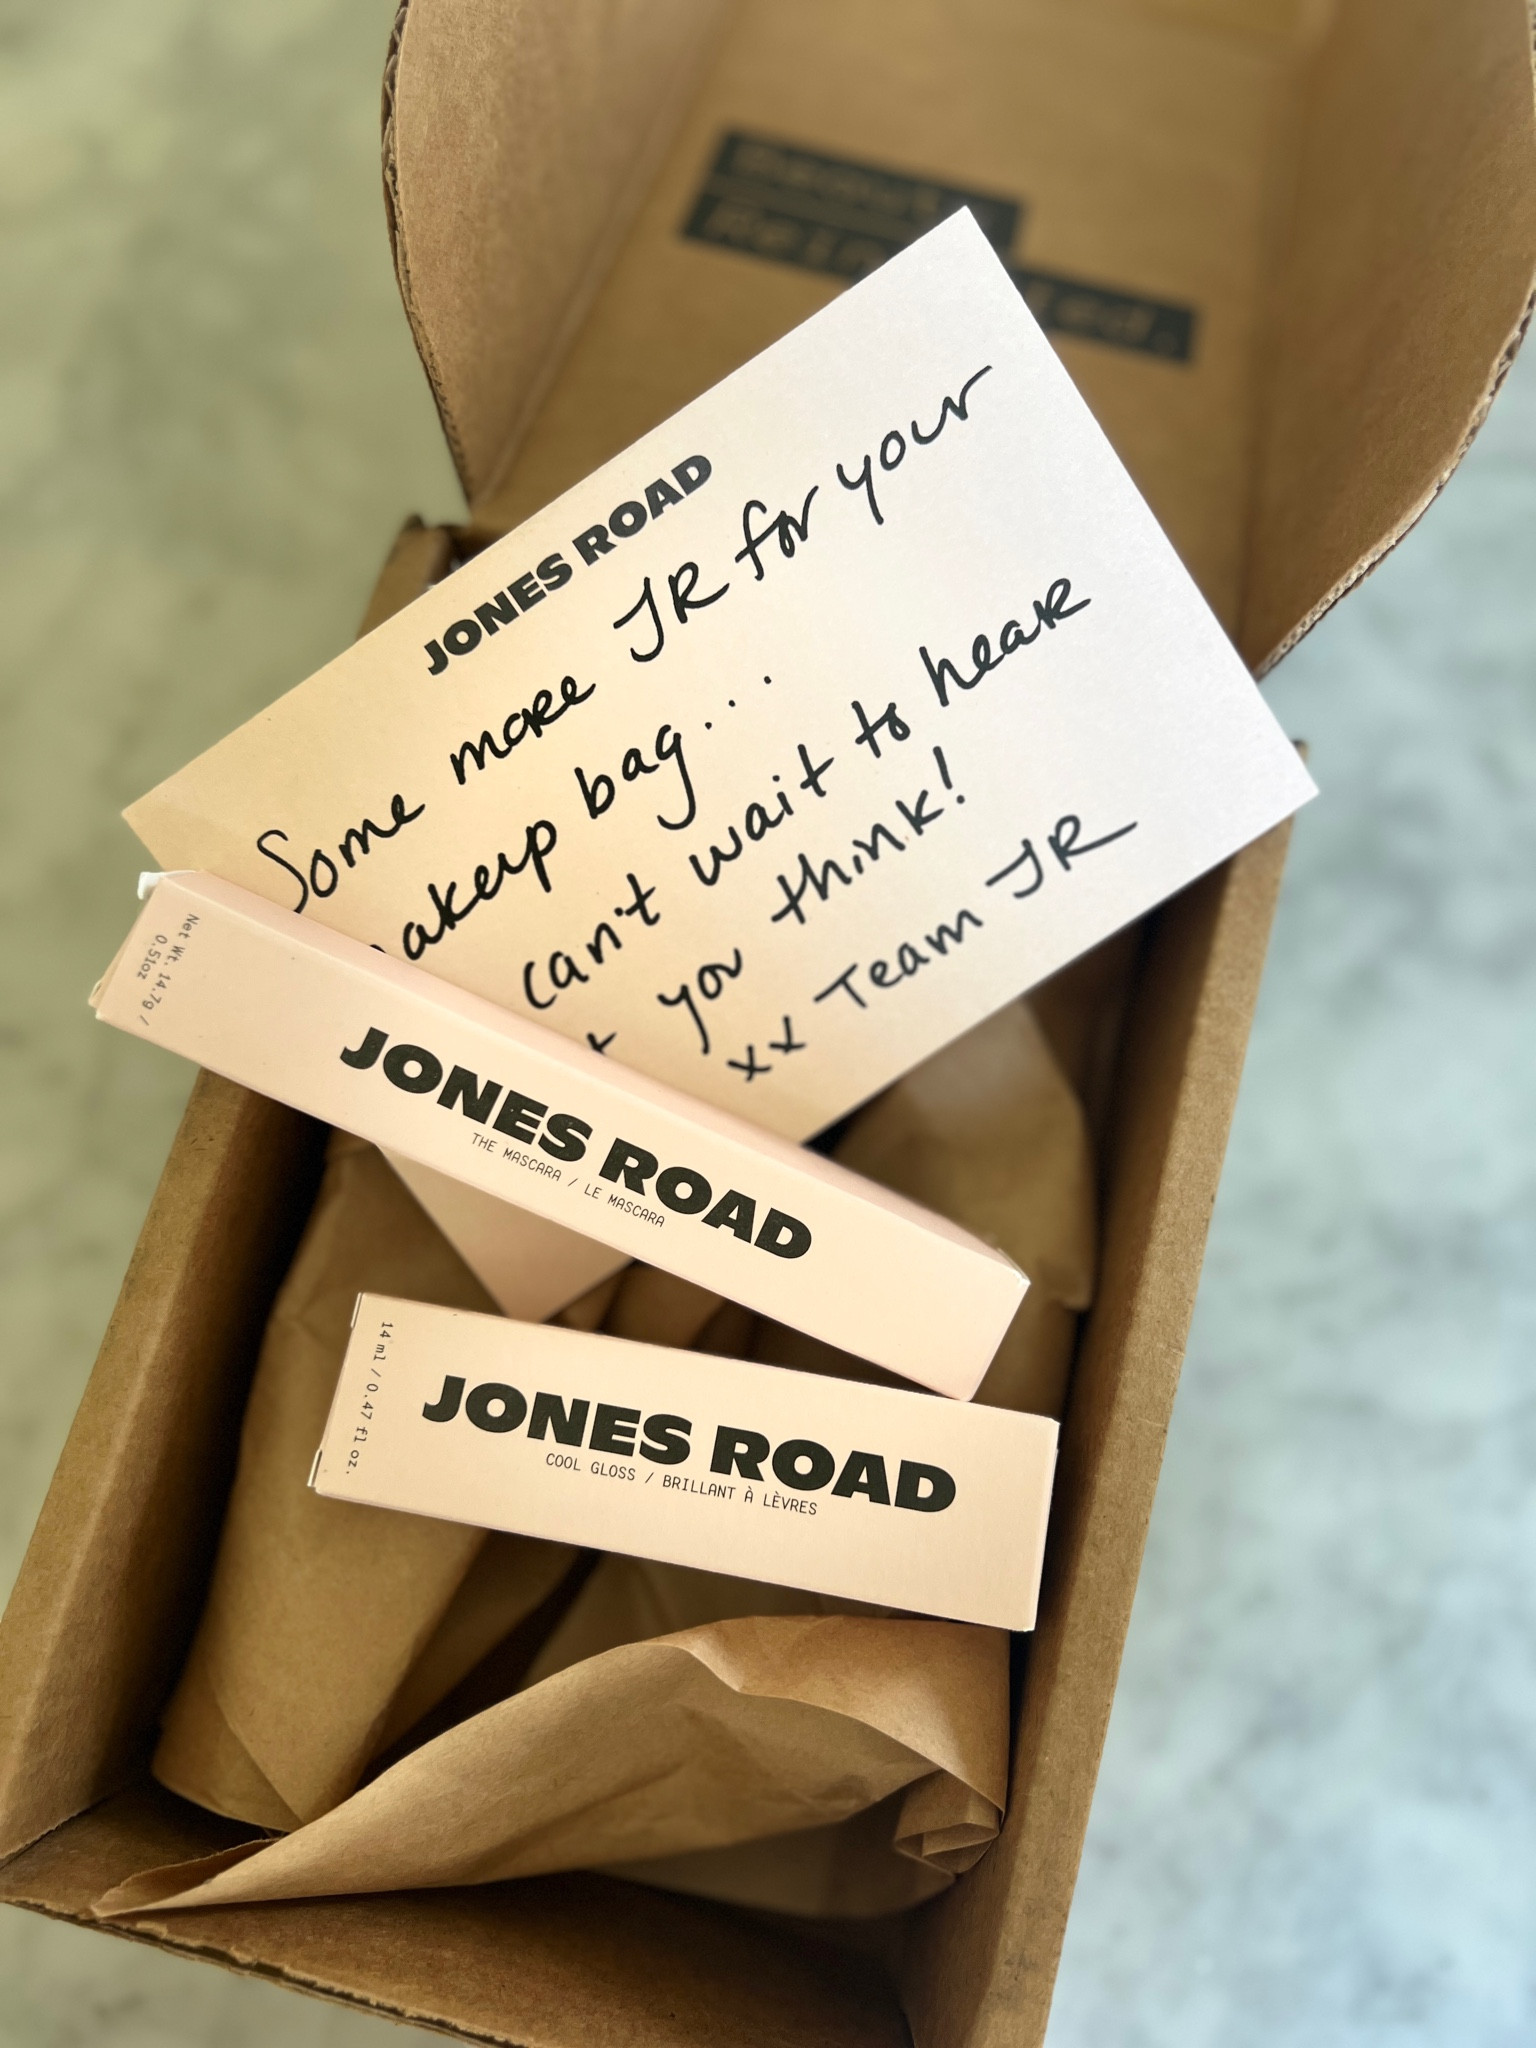 Beauty
Reinvented.
JONES ROAD
Some more JR for your
makeup bag...
can't wait to hear
you think!
xx Team JR
Net Wt. 14.7g /
0.51oz
JONES ROAD
THE MASCARA / LE MASCARA
14 ml / 0.47 fl oz.
JONES ROAD
COOL GLOSS / BRILLANT À LÈVRES